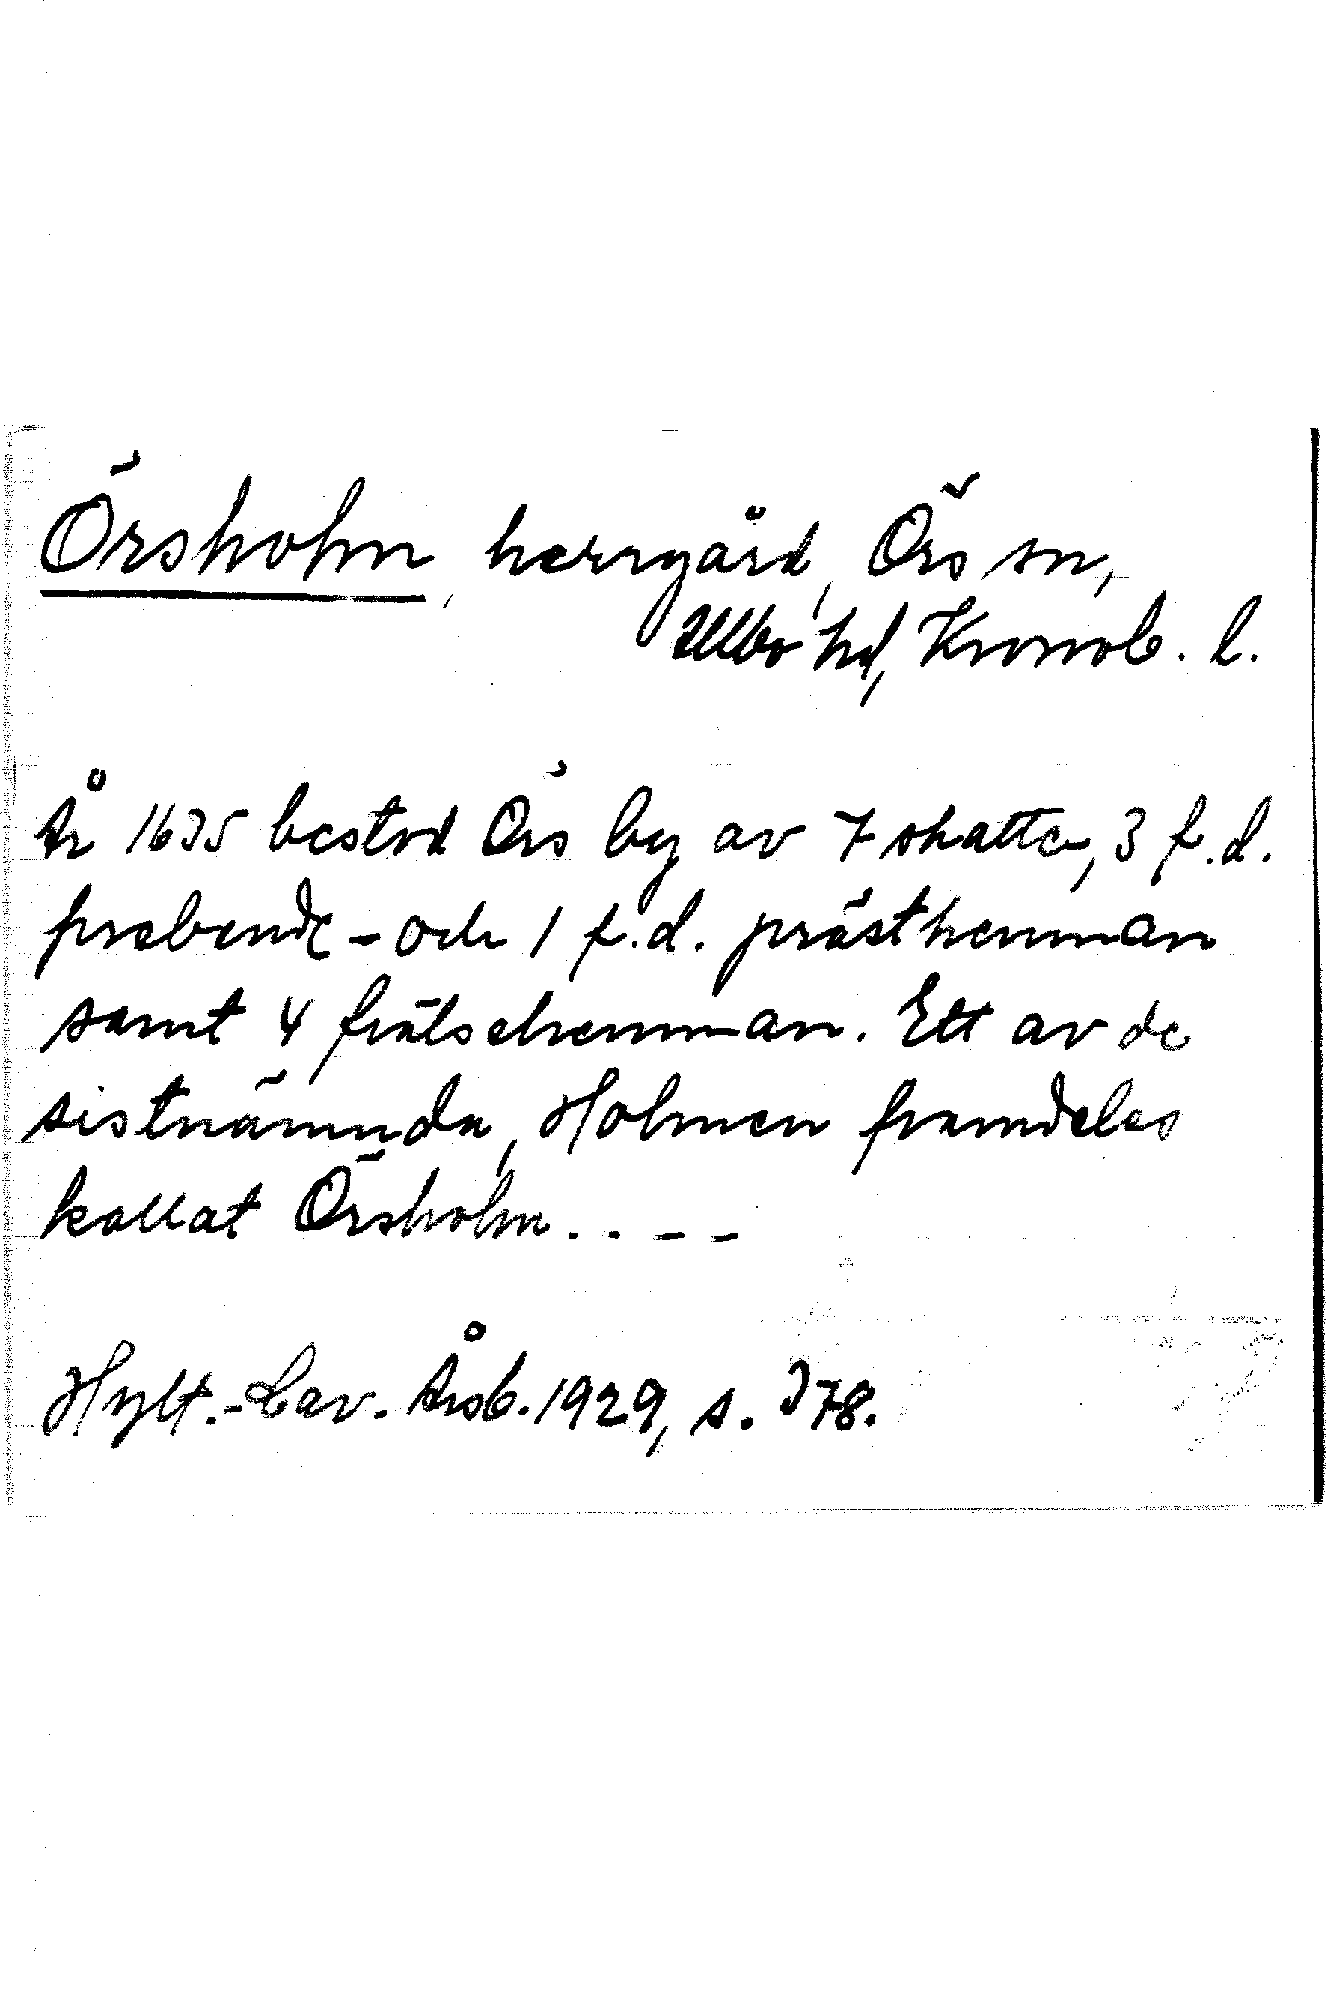 Örsholm, herrgård, Örs sn,
Allbo hd, Kronob. l.
År 1635 bestod Örs by av 7 skatte, 3 f.d.
prebende - och 1 f.d. prästhemman
samt 4 frälsehemman. Ett av de
sistnämnda, Holmen framdeles
kallat Örsholm. . . - -
Hylt.-Cav. Årsb. 1929, s. 378.